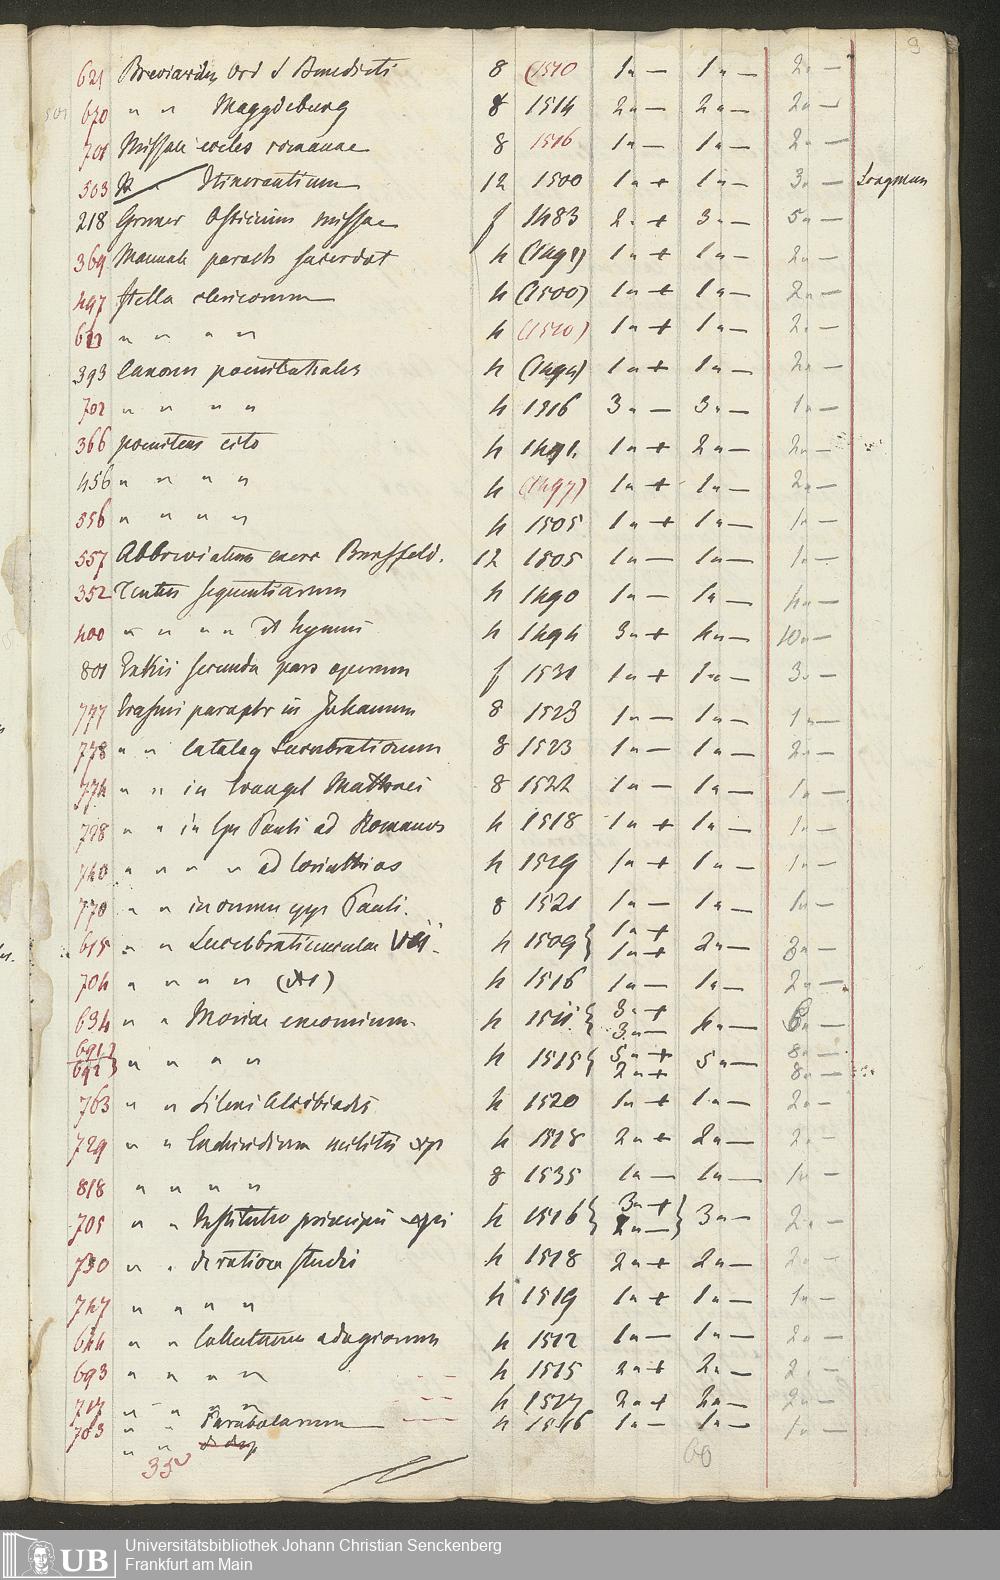 9
621 Breviariu Ord S Benedicti 8 (1510) 1 " — 1 " — 2 " —
501 670 " " Maggdeburg 8 1514 2 " — 2 " — 2 " —
701 Missale eccles romanae 8 1516 1 " — 1 " — 2 " —
503 " Itinerantium 12 1500 1 " + 1 " — 3 " — Fragmen
218 Gruner Officium missae f 1483 2 " + 3 " — 5 " —
369 Manuale paroch sacerdot 4 (1498) 1 " + 1 " — 2 " —
497 Stella clericorum 4 (1500) 1 " + 1 " — 2 " —
622 " " " " 4 (1510) 1 " + 1 " — 2 " —
393 Canones poenitentiales 4 (1494) 1 " + 1 " — 2 " —
702 " " " " 4 1516 3 " — 3 " — 1 " —
366 poenitens cito 4 1491. 1 " + 2 " — 2 " —
456 " " " " 4 (1497) 1 " + 1 " — 2 " —
556 " " " " 4 1505 1 " + 1 " — 1 " —
557 Abbreviatum Bursfeld. 12 1505 1 " — 1 " — 1 " —
352 Textus sequentiarum 4 1490 1 " — 1 " — 4 " —
400 " " " " et hymni 4 1494 3 " + 4 " — 10 " —
801 Eckii secunda pars operum f 1531 1 " + 1 " — 3 " —
777 Erasmi paraphr in Johannem 8 1523 1 " — 1 " — 1 " —
778 " " Catalog Lucubrationum 8 1523 1 " — 1 " — 2 " —
774 " " in Evangel Matthaei 8 1522 1 " — 1 " — 1 " —
728 " " in Epi Pauli ad Romanos 4 1518 1 " + 1 " — 1 " —
740 " " " " ad Corinthios 4 1519 1 " + 1 " — 1 " —
770 " " in omnes epp Pauli. 8 1521 1 " — 1 " — 1 " —
615 " " Lucubratiunculae 4 1509 } 1 " + 1 " + 2 " — 3 " —
704 " " " " 4 1516 1 " — 1 " — 2 " —
634 " " Moriae encomium 4 1511 { 3 " + 3 " — 4 " — 6 " —
691 692 } " " " " 4 1515 { 5 " + 2 " + 5 " — 8 " — 8 " —
763 " " Sileni Alcibiadis 4 1520 1 " + 1 " — 2 " —
729 " " Enchiridium militis xpi 4 1518 2 " + 2 " — 2 " —
818 " " " " 8 1535 1 " — 1 " — 1 " —
705 " " Institutio principis xpi 4 1516 } 3 " + " — } 3 " — 2 " —
730 " " de ratione studii 4 1518 2 " + 2 " — 2 " —
747 " " " " 4 1519 1 " + 1 " — 1 " —
644 " " Collectanea adagiorum 4 1512 1 " — 1 " — 2 " —
693 " " " " 4 1515 2 " + 2 " — 2 " —
717 " " " " 4 1517 2 " + 2 " — 2 " —
703 " " Parabolarum 4 1516 1 " — 1 " — 1 " —
" "
35 60
UB Universitätsbibliothek Johann Christian Senckenberg
Frankfurt am Main